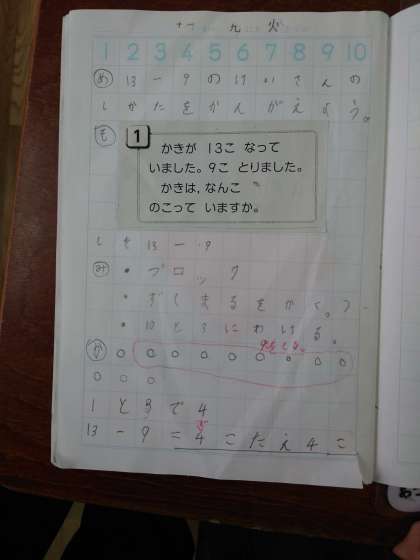 十一 九 火
1 2 3 4 5 6 7 8 9 10
め 13-9のけいさんの
しかたをかんがえよう。
も
1
かきが 13こ なって
いました。9こ とりました。
かきは,なんこ
のこって いますか。
しき 13-9
み ・ブロック
・ずしまるをかく。
・10と3にわける。
か
9をとる。
1と3で4
13-9=4 こたえ4こ